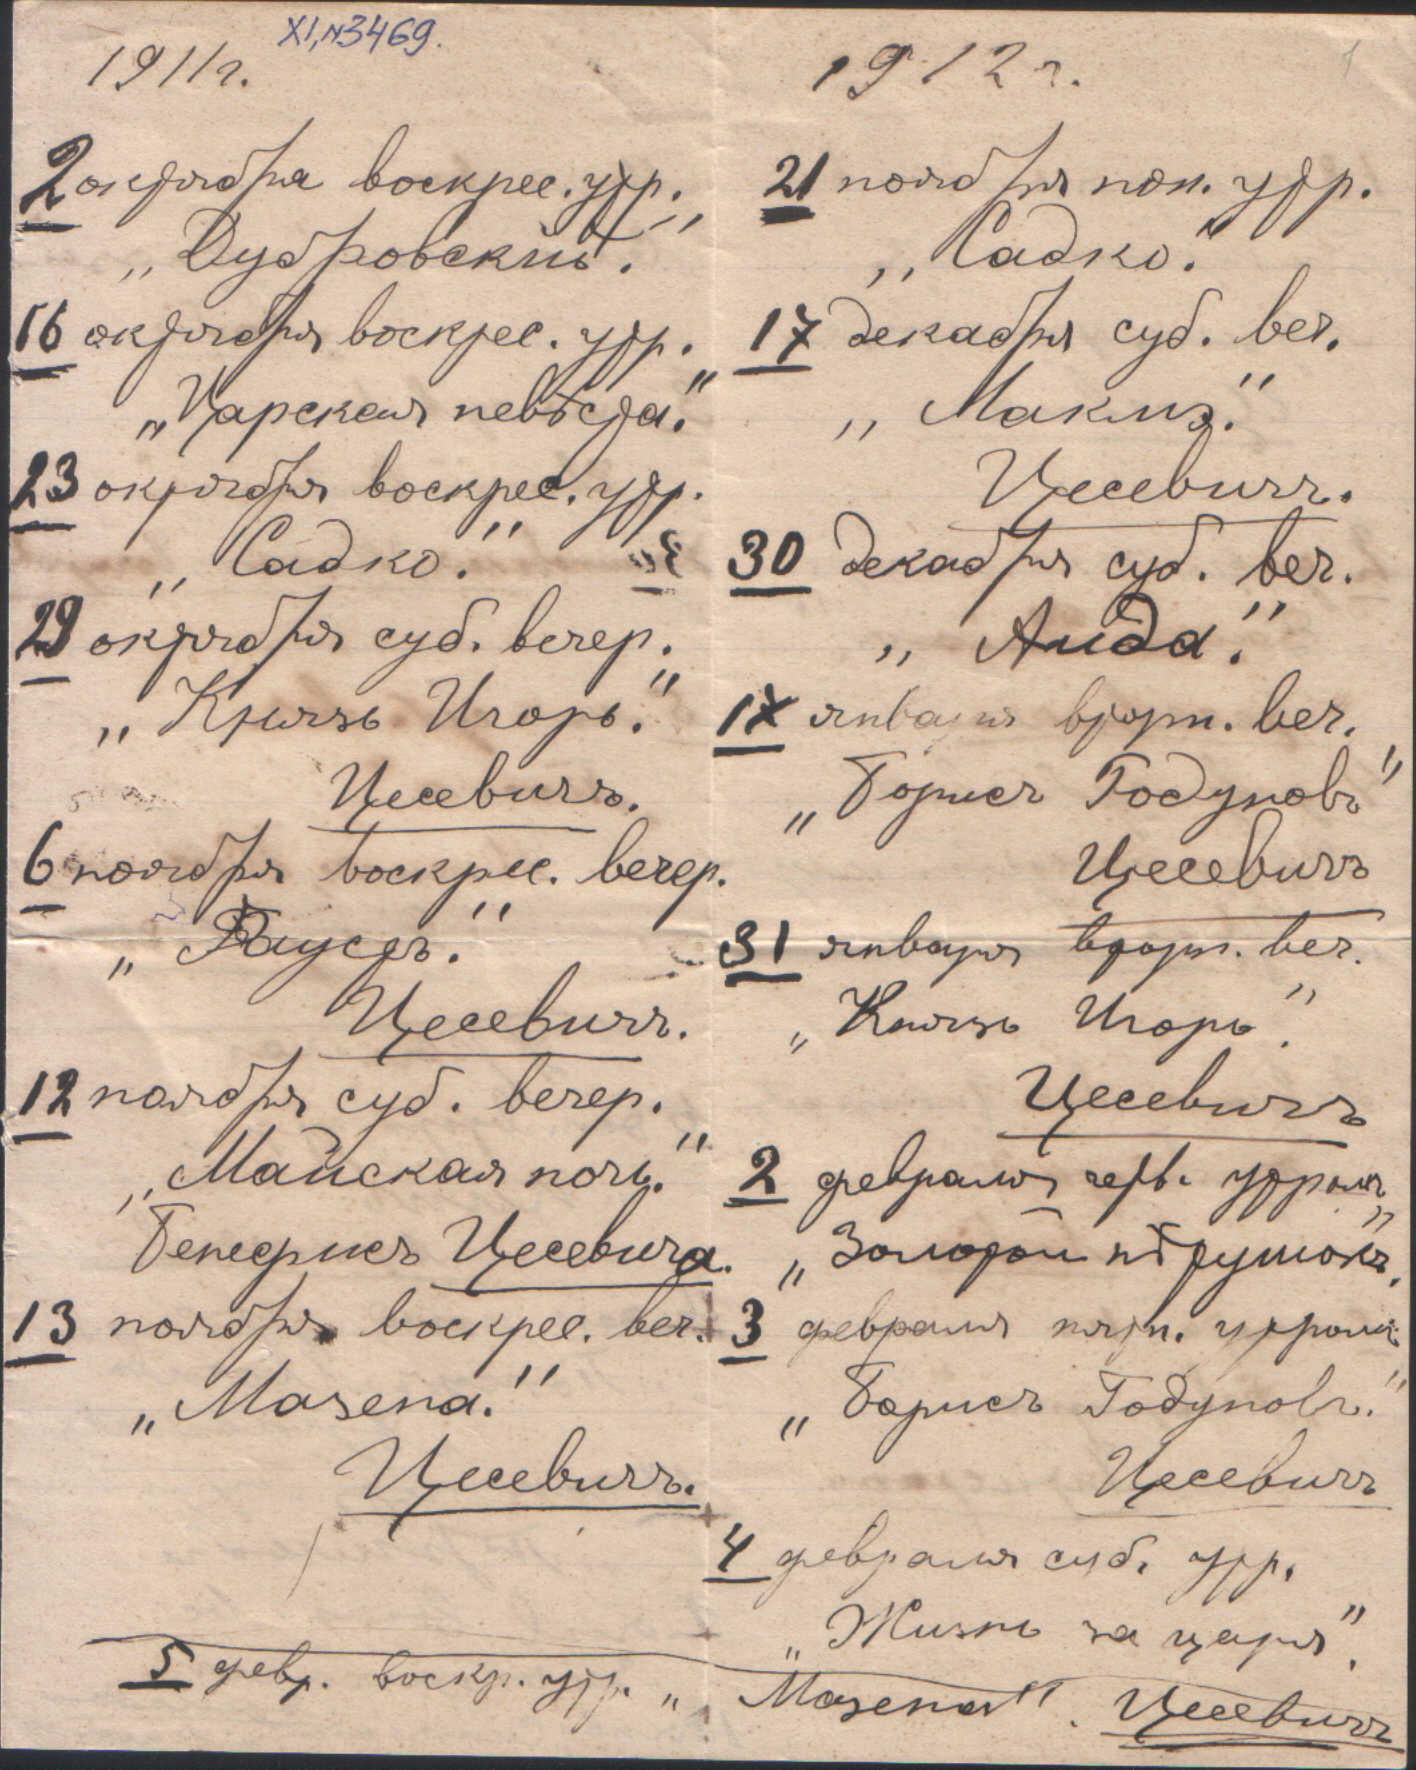 XI, №3469.
1911 г.
2 октября воскрес. утр.
„Дубровскій.“
16 октября воскрес. утр.
„Царская невѣста.“
23 октября воскрес. утр.
„Садко.“
29 октября суб. вечер.
„Князь Игорь.“
Цесевичъ.
6 ноября воскрес. вечер.
„Фаустъ.“
Цесевичъ.
12 ноября суб. вечер.
„Майская ночь.“
Бенефисъ Цесевича.
13 ноября воскрес. веч.
„Мазепа.“
Цесевичъ.
1912 г.
21 ноября пон. утр.
„Садко.“
17 декабря суб. веч.
„Лакмэ.“
Цесевичъ.
30 декабря суб. веч.
„Аида.“
17 января вторн. веч.
„Борисъ Годуновъ“
Цесевичъ
31 января вторн. веч.
„Князь Игорь“.
Цесевичъ
2 февраля четв. утромъ
„Золотой пѣтушокъ“.
3 февраля пятн. утромъ
„Борисъ Годуновъ.“
Цесевичъ
4 февраля суб. утр.
„Жизнь за царя“.
5 февр. воскр. утр. „Мазепа“. Цесевичъ